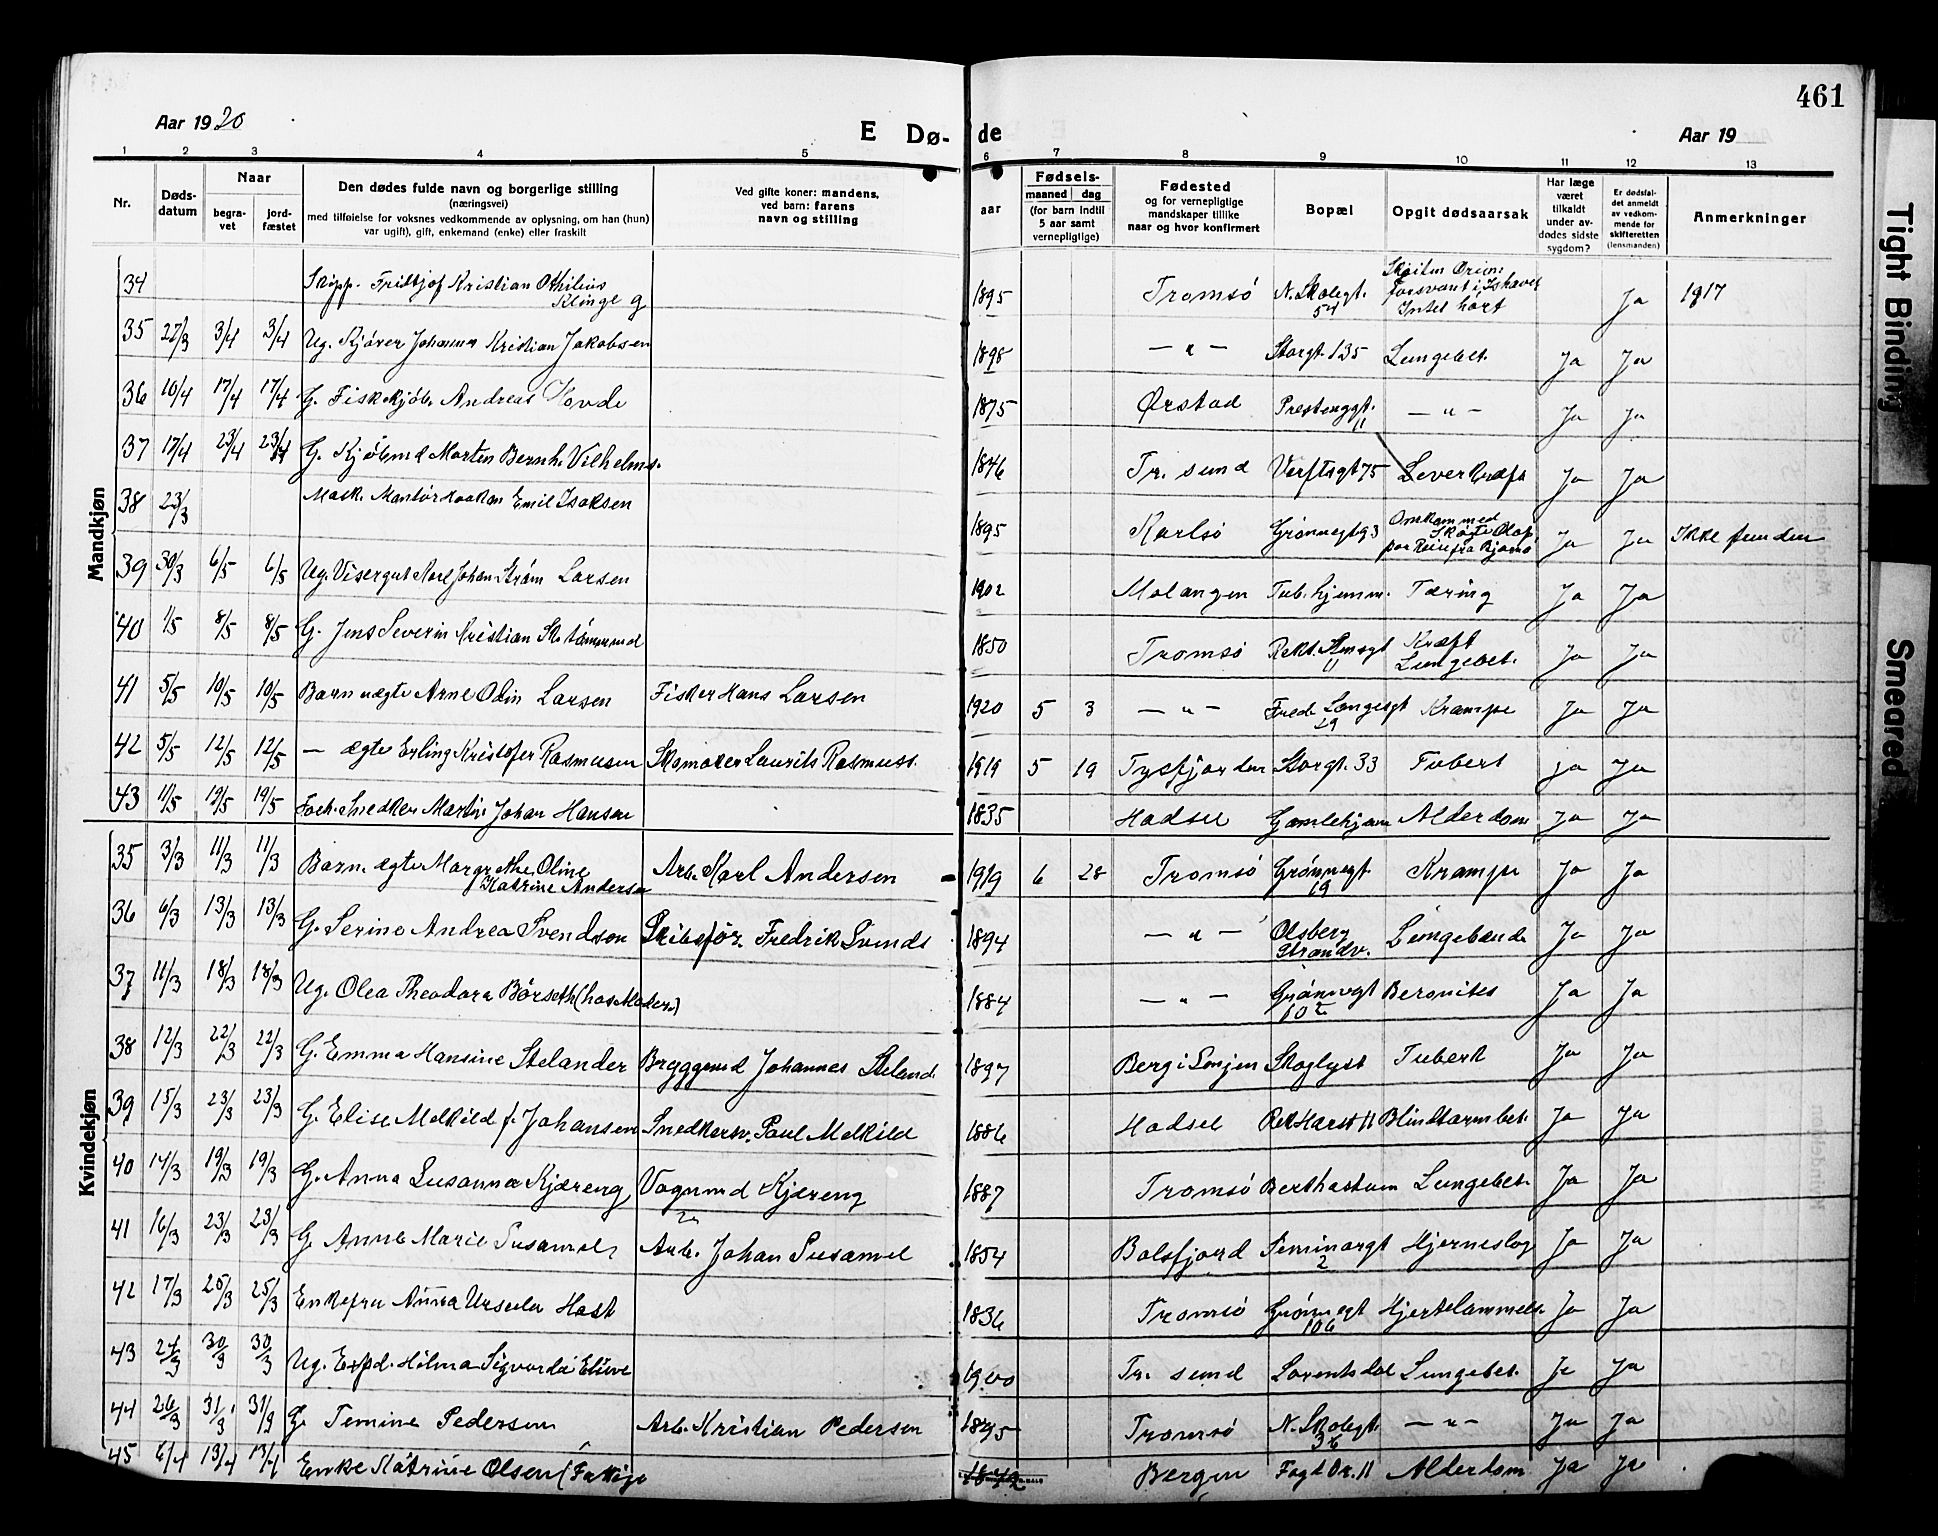 461
Aar 1920
E Dø- de
Aar 19
1 2 3 4 5 6 7 8 9 10 11 12 13
Nr.
Døds-
datum
Naar
begra-
vet
jord-
fæstet
Den dødes fulde navn og borgerlige stilling
(næringsvei)
med tilføielse for voksnes vedkommende av oplysning, om han (hun)
var ugift), gift, enkemand (enke) eller fraskilt
Ved gifte koner: mandens,
ved barn: farens
navn og stilling
Fødsels-
aar
maaned dag
(for barn indtil
5 aar samt
vernepligtige)
Fødested
og for vernepligtige
mandskaper tillike
naar og hvor konfirmert
Bopæl
Opgit dødsaarsak
Har læge
været
tilkaldt
under av-
dødes sidste
sygdom?
Er dødsfal-
det anmeldt
av vedkom-
mende for
skifteretten
(lensmanden)
Anmerkninger
Mandkjøn
34 Skipp. Fridtjof Kristian Othilius Klinge g 1895 Tromsø N. Skolegt. 54 Forsvant i Ishavet Intet hørt Ja 1917
35 27/3 3/4 3/4 Ug. Johannes Kristian Jakobsen 1898 — " — Storgt. 135 Lungebet. Ja Ja
36 10/4 17/4 17/4 G. Fiskekjøb. Andreas Hovde 1875 Ørstad Prestenggt. 11 — " — Ja Ja
37 17/4 23/4 23/4 G. Kjøbmd Morten Bernh. Vilhelms. 1846 Tr. sund Verftsgt 75 Leverkræft Ja Ja
38 23/3 Mask. Montør Haakon Emil Isaksen 1895 Karlsø Grønnegt 93 Omkom med Skøite Olaf paa Reise fra Bjørnø Ja Ja Ikke funden
39 30/3 6/5 6/5 Ug. Visergut Karl Johan Strøm Larsen 1902 Malangen Tub. hjemm. Tæring Ja Ja
40 1/5 8/5 8/5 G. Jens Severin Kristian 1850 Tromsø 11 Kræft Lungebet. Ja Ja
41 5/5 10/5 10/5 Barn ægte Arne Odin Larsen Fisker Hans Larsen 1920 5 3 — " — Fred. Langesgt 29 Krampe Ja Ja
42 5/5 12/5 12/5 — ægte Erling Kristofer Rasmusen Skomaker Laurits Rasmuss. 1919 5 19 Tysfjorden Storgt. 33 Tuberk Ja Ja
43 11/5 19/5 19/5 Forh. Snedker Martin Johan Hansen 1835 Hadsel Gamlehjem Alderdom Ja Ja
Kvindekjøn
35 3/3 11/3 11/3 Barn ægte Margrethe Oline Katrine Andersen Arb. Karl Andersen 1919 6 28 Tromsø Grønnegt. 19 Krampe Ja Ja
36 6/3 13/3 13/3 G. Serine Andrea Svendsen Skibsfør Fredrik Svends 1894 — " — Olsberg Strandv. Lungebænde Ja Ja
37 11/3 18/3 18/3 Ug. Olea Theodora Børseth (hos Moder.) 1884 — " — Grønnegt 102 Ja Ja
38 12/3 22/3 22/3 G. Emma Hansine Stelander Bryggemd Johannes Steland. 1897 Berg i Senjen Skoglyst Tuberk Ja Ja
39 15/3 23/3 23/3 G. Elise Melkild f. Johansen Snedkersv. Paul Melkild 1886 Hadsel Rek Harst 11 Blindtarmbet. Ja Ja
40 14/3 19/3 19/3 G. Anna Susanna Kjæreng Vognmd Kjæreng 1887 Tromsø Berthastuen Lungebet. Ja Ja
41 16/3 23/3 23/3 G. Anne Marie Susamel Arb. Johan Susamel 1854 Balsfjord Seminargt 2 Hjerneslag Ja Ja
42 17/3 25/3 25/3 Enkefru Anna Ursula Hast 1836 Tromsø Grønnegt 106 Hjertelammelse Ja Ja
43 24/3 30/3 30/3 Ug. Expd. Hilma Sigvarda 1900 Tr. sund Lorentsdal Lungebet. Ja Ja
44 26/3 31/3 31/3 G. Temine Pedersen Arb. Kristian Pedersen 1895 Tromsø N. Skolegt. 36 — " — Ja Ja
45 6/4 13/4 13/4 Enke Katrine Olsen (Fattige Bergen Fogd Dr. 11 Alderdom Ja Ja
Tight Binding
Smeared